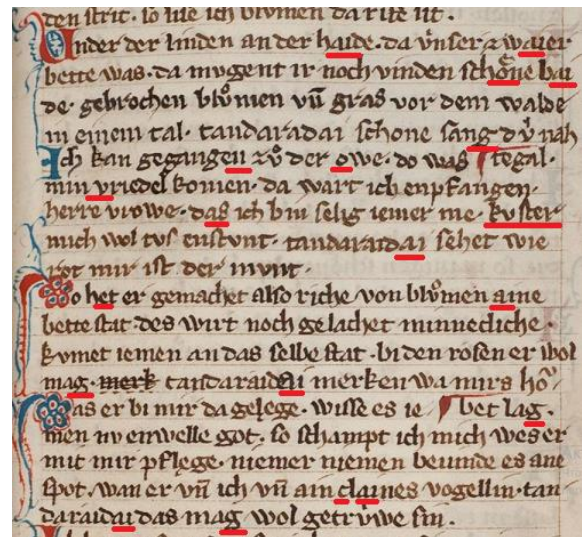 den strit. so lie ich blvͦmen da rise sit.
Under der linden an der haide. da vnser zwaier
bette was. da mvgent ir noch vinden schoͤne bai
de. gebrochen blvͦmen vn̄ gras vor dem walde
in einem tal. tandaradai schone sang dv̓ nah
Ich kan gegangen zvͦ der owe. do was tegal.
min vriedel komen. da wart ich enpfangen.
herre vrowe. das ich bin selig iemer me. kvster
mich wol tvs enstvnt. tandaraidai sehet wie
rot mir ist der mvnt.
Do het er gemachet also riche von blvͦmen aine
bette stat. des wirt noch gelachet minnecliche.
kvmet iemen an das selbe stat. bi den rosen er wol
mag. merk tandaraidai merken wa mirs hoͮ.
as er bi mir da gelege. wisse es ie bet lag.
men nv enwelle got. so schampt ich mich wes er
mit mir pflege. niemer niemen bevinde es ane
spot. wan er vn̄ ich vn̄ ain claines vogellin. tan
daraidai das mag wol getrv̓we sin.